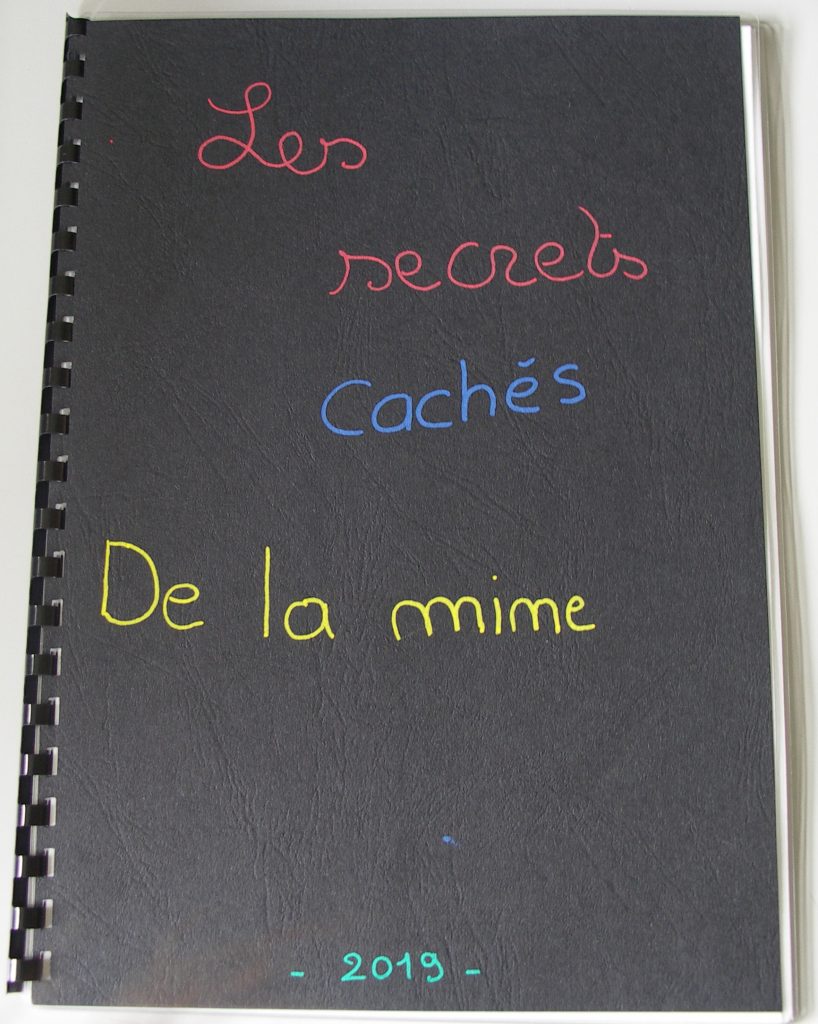 Les
secrets
cachés
De la mime
- 2019 -